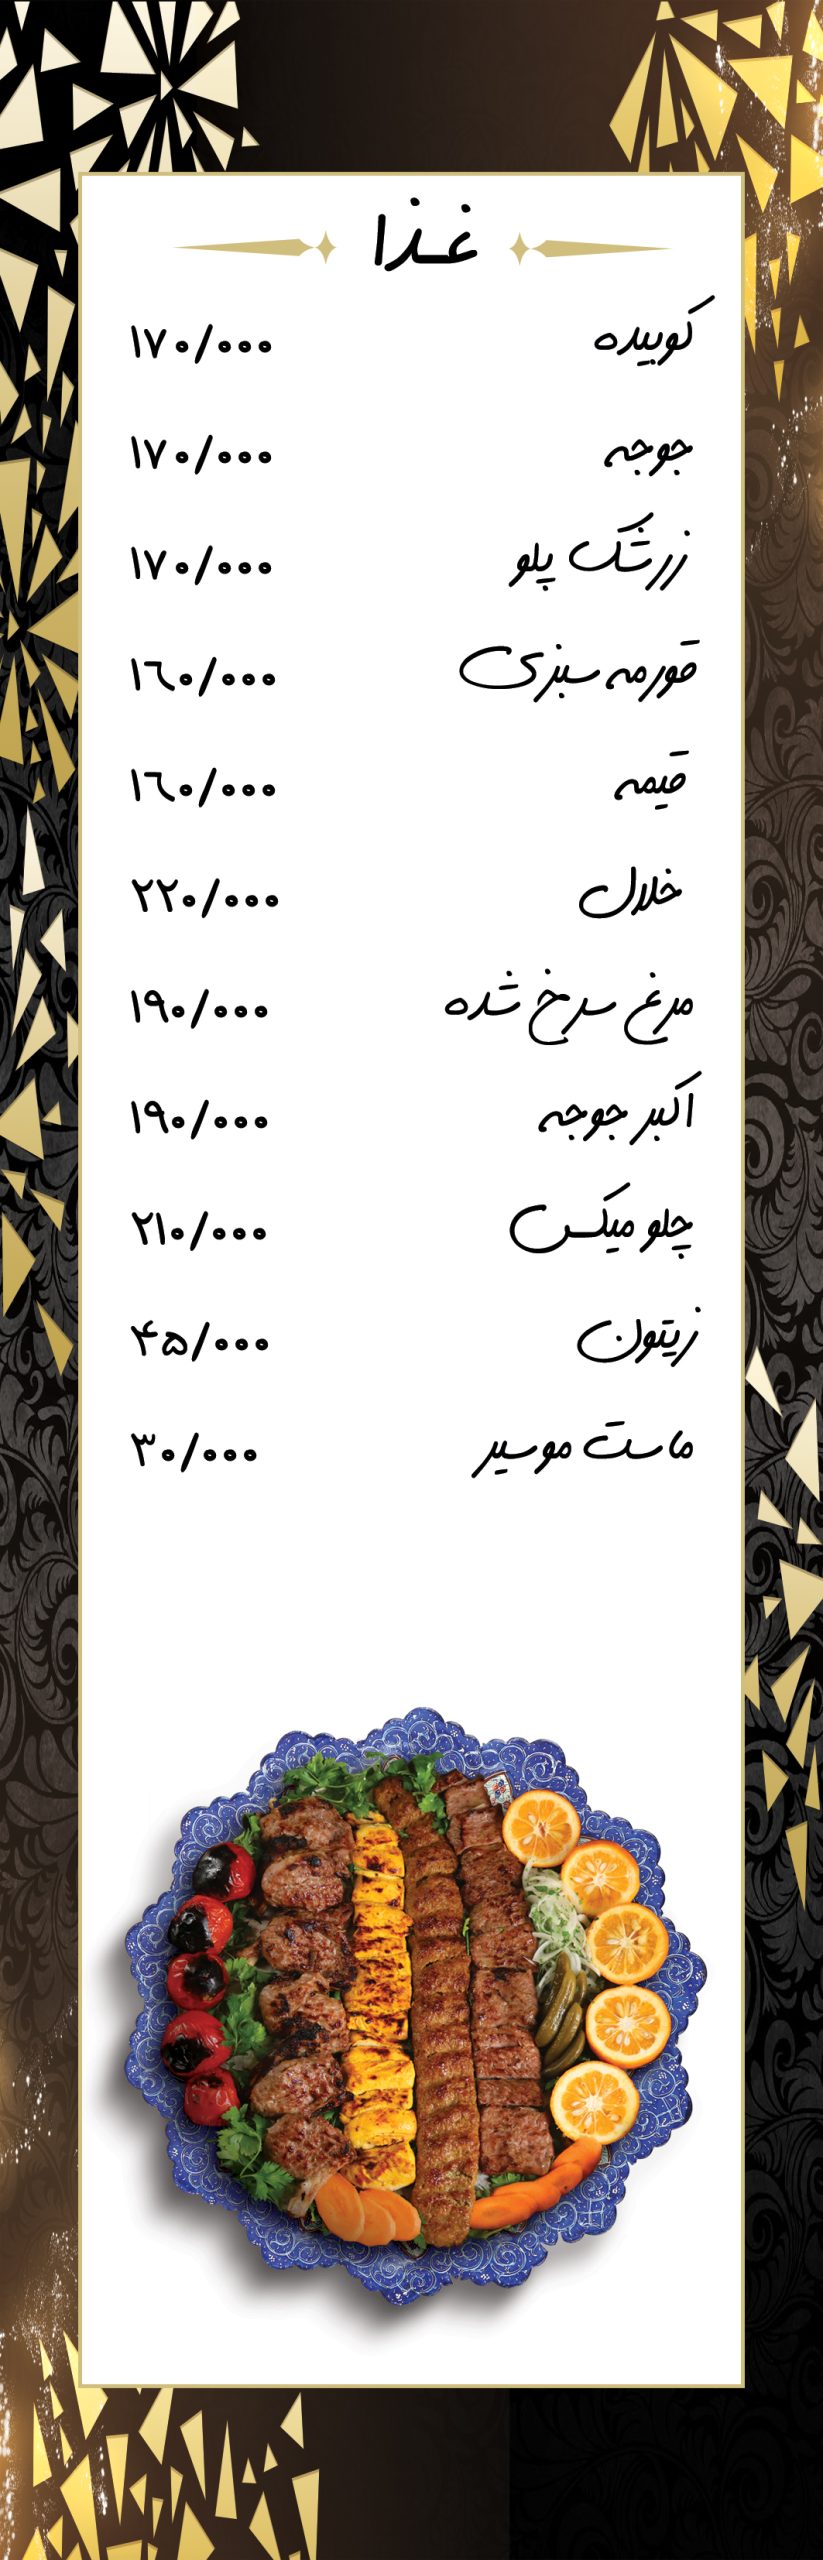 غذا
کوبیده ۱۷۰/۰۰۰
جوجه ۱۷۰/۰۰۰
زرشک پلو ۱۷۰/۰۰۰
قورمه سبزی ۱٦۰/۰۰۰
قیمه ۱٦۰/۰۰۰
خلال ۲۲۰/۰۰۰
مرغ سرخ شده ۱۹۰/۰۰۰
اکبر جوجه ۱۹۰/۰۰۰
چلو میکس ۲۱۰/۰۰۰
زیتون ۴۵/۰۰۰
ماست موسیر ۳۰/۰۰۰